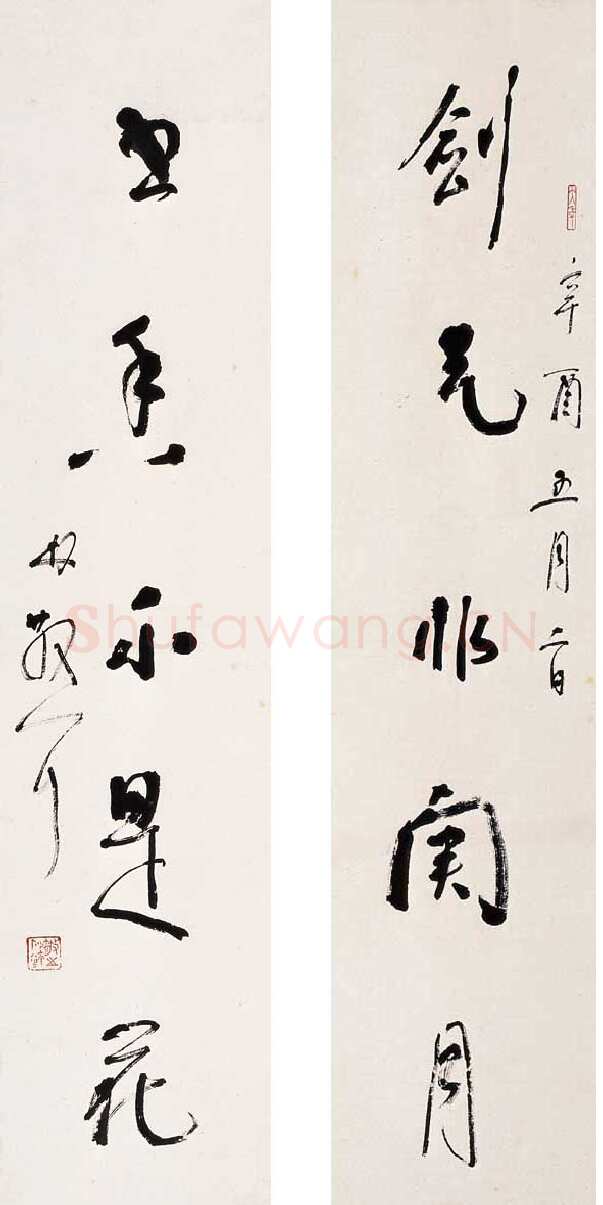 辛酉五月二日
剑气非关月
书香不是花
林散耳
Shufawang.CN